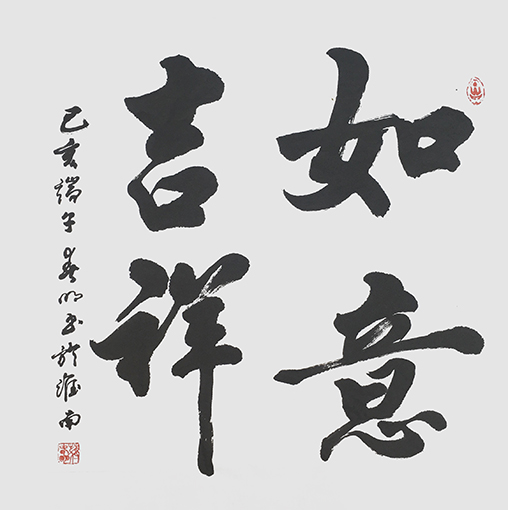 如意
吉祥
己亥端午春明书于淮南